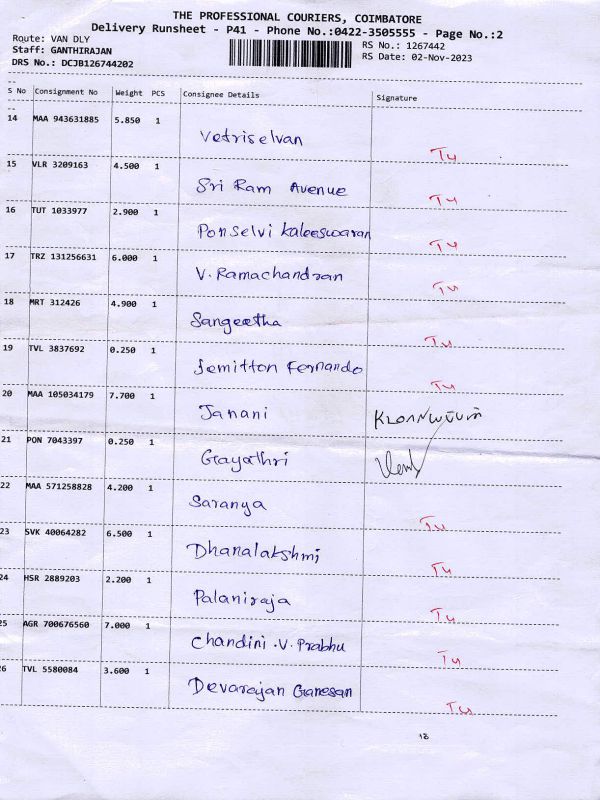 THE PROFESSIONAL COURIERS, COIMBATORE
Delivery Runsheet - P41 - Phone No.:0422-3505555 - Page No.:2
Route: VAN DLY
RS No.: 1267442
Staff: GANTHIRAJAN
RS Date: 02-Nov-2023
DRS No.: DCJB126744202
S No Consignment No Weight PCS Consignee Details Signature
14 MAA 943631885 5.850 1 Vetriselvan Tu
15 VLR 3209163 4.500 1 Sri Ram Avenue Tu
16 TUT 1033977 2.900 1 Ponselvi Kaleeswaran Tu
17 TRZ 131256631 6.000 1 V. Ramachandran Tu
18 MRT 312426 4.900 1 Sangeetha Tu
19 TVL 3837692 0.250 1 Jemitton Fernando Tu
20 MAA 105034179 7.700 1 Janani
21 PON 7043397 0.250 1 Gayathri
22 MAA 571258828 4.200 1 Saranya Tu
23 SVK 40064282 6.500 1 Dhanalakshmi Tu
24 HSR 2889203 2.200 1 Palaniraja Tu
25 AGR 700676560 7.000 1 Chandini .V. Prabhu Tu
26 TVL 5580084 3.600 1 Devarajan Ganesan Tu